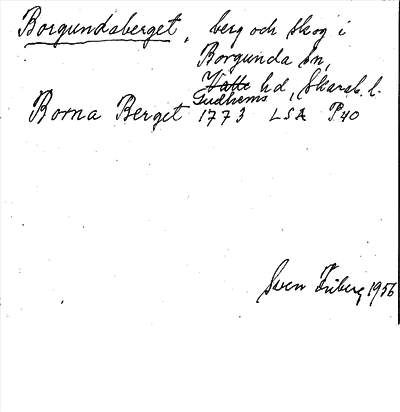 Borgundaberget, berg och skog i
Borgunda sn,
Vätte hd, Skarab. l.
Gudhems
Borna Berget 1773 LSA P40
Sven Friberg 1956